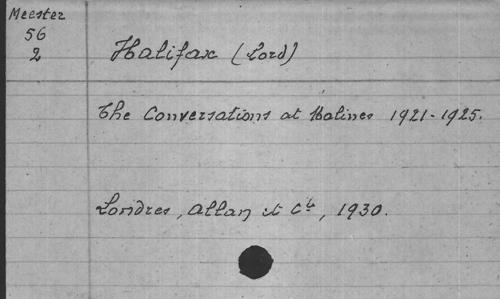 Meester
56
2
Halifax (Lord)
The Conversations at Malines 1921-1925.
Londres, Allan et Cie, 1930.